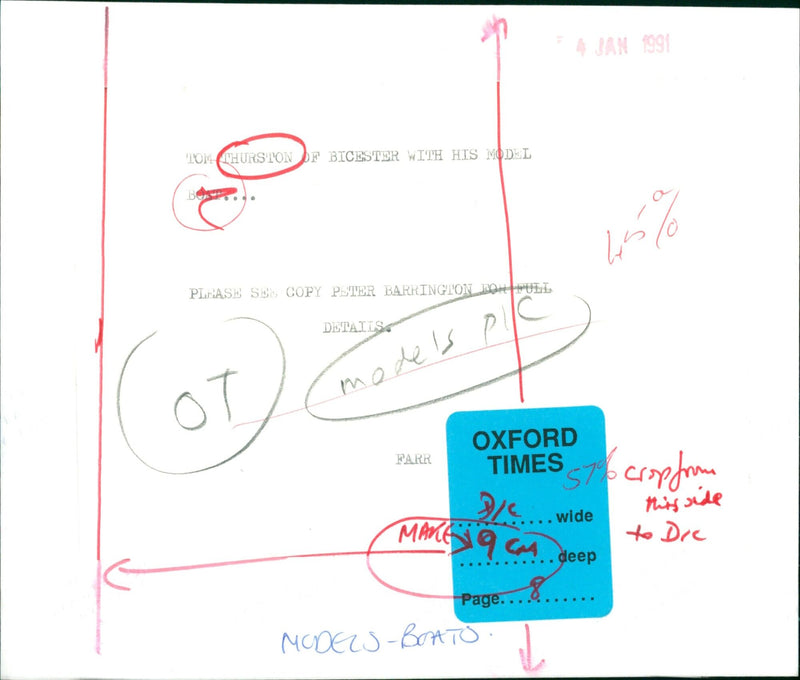 4 JAN 1991
TOM THURSTON OF BICESTER WITH HIS MODEL
BOAT....
PLEASE SEE COPY PETER BARRINGTON FOR FULL
DETAILS.
models P/C
OT
FARR
OXFORD
TIMES
D/c wide
MAKE 9 cm deep
Page 8
57% crop from
this side
to D/c
MODELS - BOATS.